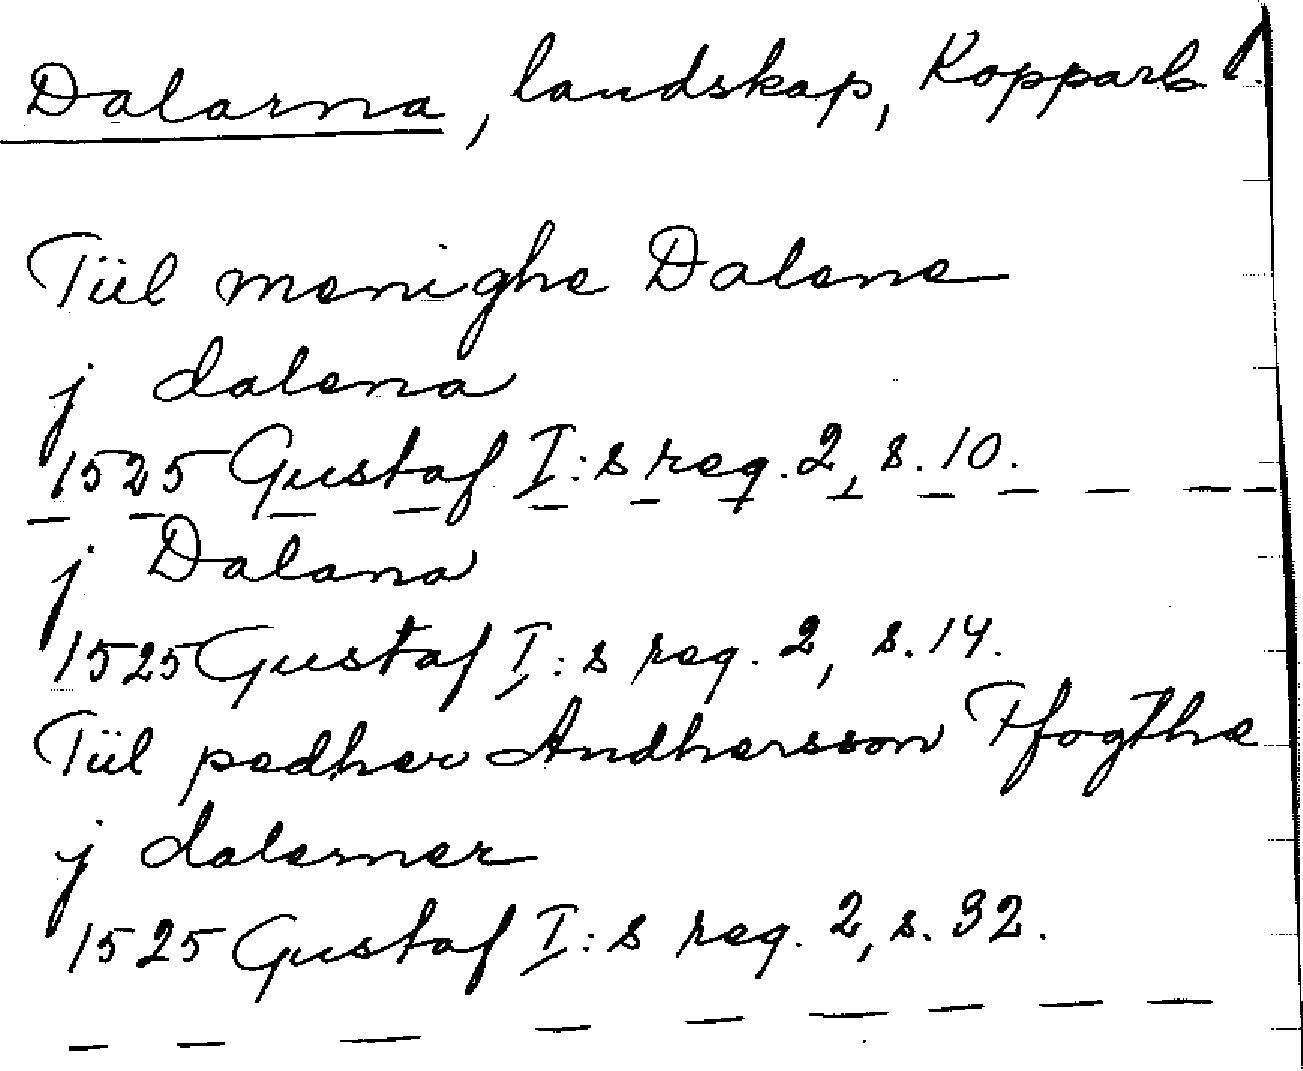 Dalarna, landskap, Kopparb l.
Tiil menighe Dalene
j dalena
1525 Gustaf I:s reg. 2, s. 10.
j Dalana
1525 Gustaf I:s reg. 2, s. 14.
Tiil pedher Andhersson Ffogthe
j dalerner
1525 Gustaf I:s reg. 2, s. 32.